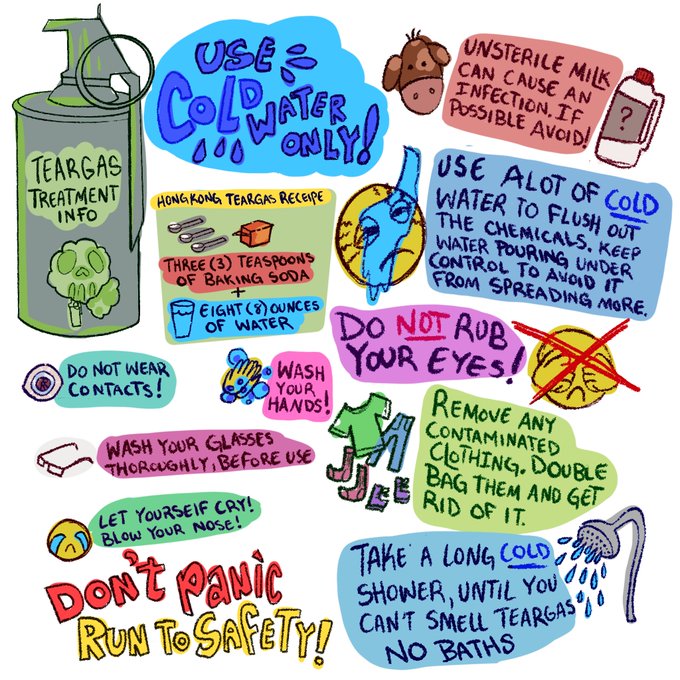 TEARGAS
TREATMENT
INFO
USE
COLD
WATER
ONLY!
UNSTERILE MILK
CAN CAUSE AN
INFECTION. IF
POSSIBLE AVOID!
?
HONGKONG TEARGAS RECEIPE
THREE (3) TEASPOONS
OF BAKING SODA
+
EIGHT (8) OUNCES
OF WATER
USE A LOT OF COLD
WATER TO FLUSH OUT
THE CHEMICALS. KEEP
WATER POURING UNDER
CONTROL TO AVOID IT
FROM SPREADING MORE.
DO NOT RUB
YOUR EYES!
DO NOT WEAR
CONTACTS!
WASH
YOUR
HANDS!
WASH YOUR GLASSES
THOROUGHLY, BEFORE USE
REMOVE ANY
CONTAMINATED
CLOTHING. DOUBLE
BAG THEM AND GET
RID OF IT.
LET YOURSELF CRY!
BLOW YOUR NOSE!
DON'T PANIC
RUN TO SAFETY!
TAKE A LONG COLD
SHOWER, UNTIL YOU
CAN'T SMELL TEARGAS
NO BATHS